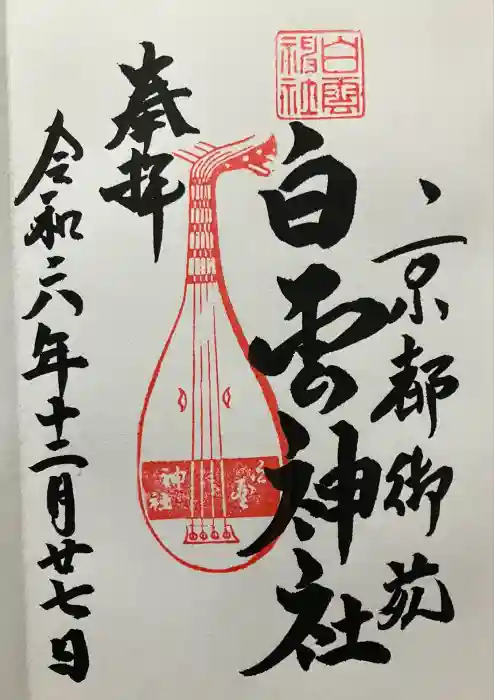 京都御苑
白雲神社
白雲神社
奉拝
白雲神社
令和六年十二月廿七日